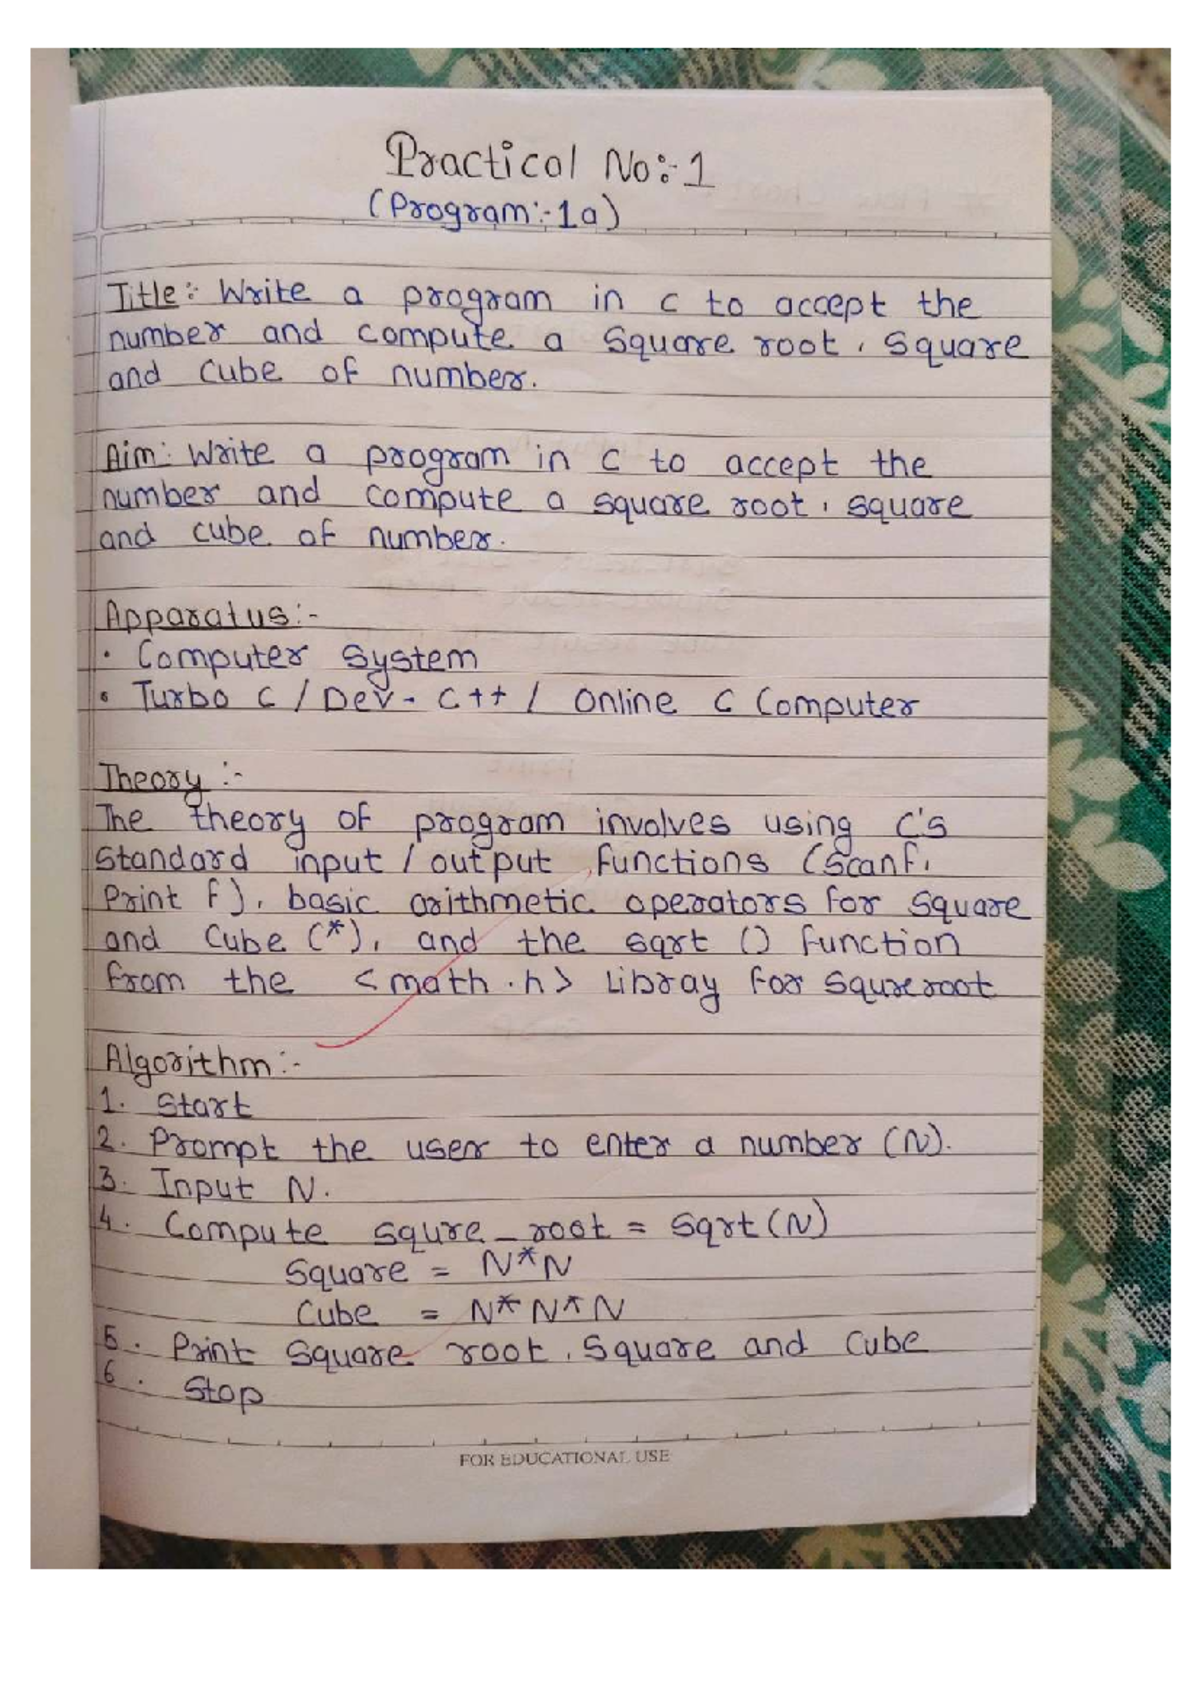 Practical No:-1
(Program:-1a)
Title: Write a program in C to accept the
number and compute a Square root, Square
and Cube of number.
Aim: Write a program in C to accept the
number and compute a square root, square
and cube of number.
Apparatus:-
• Computer System
• Turbo C / Dev - C++ / Online C Computer
Theory :-
The theory of program involves using C's
Standard input / output functions (Scanf,
Print f), basic arithmetic operators for Square
and Cube (*), and the sqrt () function
from the <math.h> Libray for Squreroot
Algorithm:-
1. Start
2. Prompt the user to enter a number (N).
3. Input N.
4. Compute squre_root = Sqrt(N)
Square = N*N
Cube = N*N*N
5. Print Square root, Square and Cube
6. Stop
FOR EDUCATIONAL USE